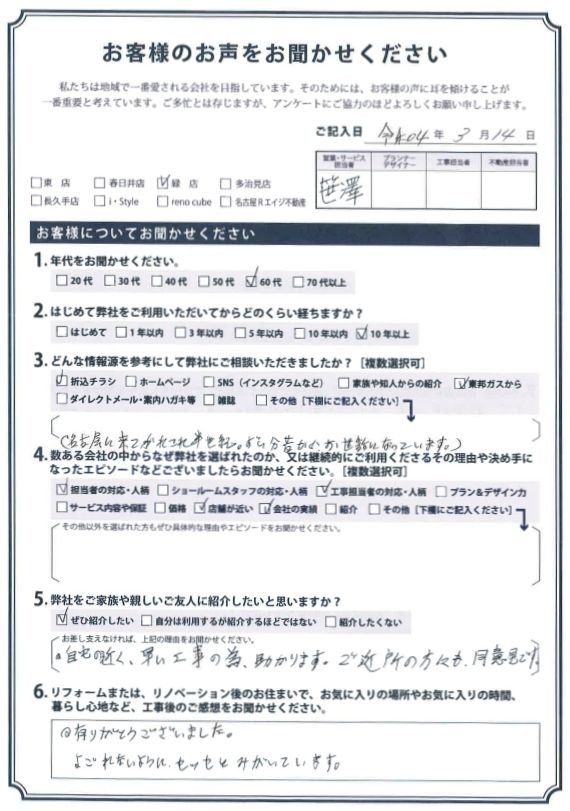 お客様のお声をお聞かせください
私たちは地域で一番愛される会社を目指しています。そのためには、お客様の声に耳を傾けることが
一番重要と考えています。ご多忙とは存じますが、アンケートにご協力のほどよろしくお願い申し上げます。
ご記入日 令和04年 3月14日
営業・サービス担当者 プランナーデザイナー 工事担当者 不動産担当者
笹澤
□東 店 □春日井店 ☑緑 店 □多治見店
□長久手店 □i・Style □reno cube □名古屋Rエイジ不動産
お客様についてお聞かせください
1. 年代をお聞かせください。
□20代 □30代 □40代 □50代 ☑60代 □70代以上
2. はじめて弊社をご利用いただいてからどのくらい経ちますか?
□はじめて □1年以内 □3年以内 □5年以内 □10年以内 ☑10年以上
3. どんな情報源を参考にして弊社にご相談いただきましたか?[複数選択可]
☑折込チラシ □ホームページ □SNS(インスタグラムなど) □家族や知人からの紹介 ☑東邦ガスから
□ダイレクトメール・案内ハガキ等 □雑誌 □その他[下欄にご記入ください]
(名古屋に来てかれこれ半世紀。
4. 数ある会社の中からなぜ弊社を選ばれたのか、又は継続的にご利用くださるその理由や決め手に
なったエピソードなどございましたらお聞かせください。[複数選択可]
☑担当者の対応・人柄 □ショールームスタッフの対応・人柄 ☑工事担当者の対応・人柄 □プラン&デザイン力
□サービス内容や保証 □価格 ☑店舗が近い ☑会社の実績 □紹介 □その他[下欄にご記入ください]
その他以外を選ばれた方もぜひ具体的な理由やエピソードをお聞かせください。
5. 弊社をご家族や親しいご友人に紹介したいと思いますか?
☑ぜひ紹介したい □自分は利用するが紹介するほどではない □紹介したくない
お差し支えなければ、上記の理由をお聞かせください。
自宅の近く、早い工事の為、助かります。ご近所の方々も、同意見です。
6. リフォームまたは、リノベーション後のお住まいで、お気に入りの場所やお気に入りの時間、
暮らし心地など、工事後のご感想をお聞かせください。
有りがとうございました。
よごれないように、セッセとみがいています。